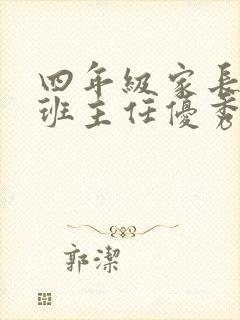 四年級家長
班主任優秀
郭潔